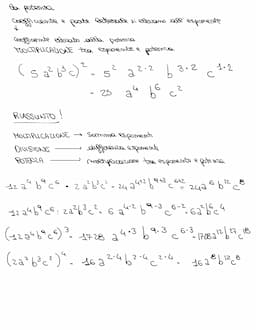 La potenza
Coefficiente e parte letterale si elevano all' esponente
↓
coefficiente elevato alla potenza
MOLTIPLICAZIONE tra esponente e potenza
(5a²b³c)² = 5² a²·² b³·² c¹·²
= 25 a⁴ b⁶ c²
RIASSUNTO!
MOLTIPLICAZIONE → Somma esponenti
DIVISIONE → differenza esponenti
POTENZA → moltiplicazione tra esponente e potenza
12a⁴b⁹c⁶ · 2a²b³c² = 24a⁴⁺²b⁹⁺³c⁶⁺² = 24a⁶b¹²c⁸
12a⁴b⁹c⁶ : 2a²b³c² = 6a⁴⁻²b⁹⁻³c⁶⁻² = 6a²b⁶c⁴
(12a⁴b⁹c⁶)³ = 1728 a⁴·³ b⁹·³ c⁶·³ = 1728a¹²b²⁷c¹⁸
(2a²b³c²)⁴ = 16a²·⁴b³·⁴c²·⁴ = 16a⁸b¹²c⁸